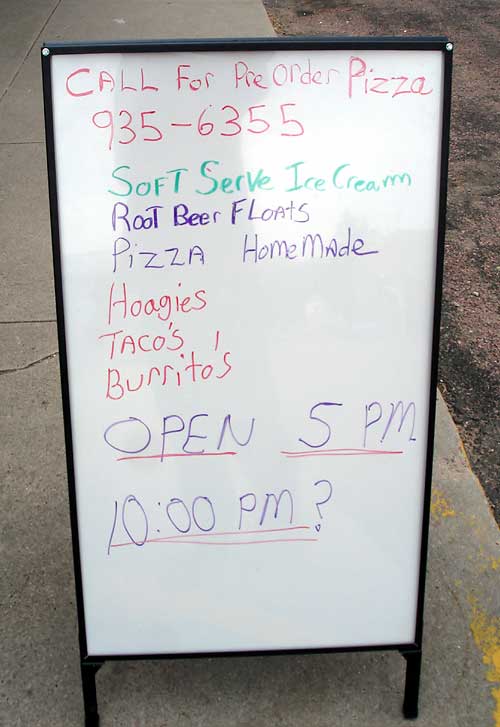 CALL For Pre Order Pizza
935-6355
SOFT Serve Ice Cream
ROOT Beer FLOAtS
PiZZA HomeMAde
Hoagies
TACO'S
Burrito's
OPEN 5 PM
10:00 PM?